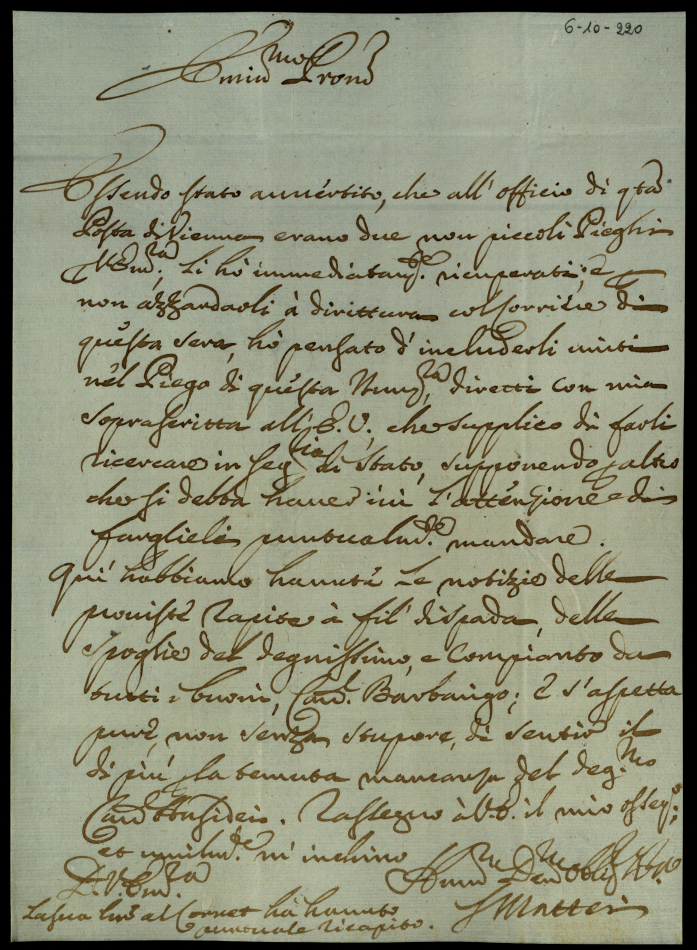 6-10-220
Emin.mo Prone
Essendo stato auuertito, che all' officio di q.ta
Posta di Vienna erano due non piccoli Pieghi
V. Em.za, li hò immediatam.te ricuperati; e
non azzardaoli à dirittura col di
questa sera, hò pensato d' includerli uniti
nel Piego di questa Nunz.ra, diretti con mia
sopraseritta all' E. V., che supplico di farli
ricercare in Seg.ria di Stato, supponendo p altro
che si debba hauer iui l' attenzione di
farglieli puntualm.te mandare.
Qui habbiamo hauute le notizie delle
prouiste rapite à fil' di spada, delle
spoglie del degnissimo, e compianto da
tutti i buoni, Card. Barbarigo; e s' aspetta
pure, non senza stupore, di sentir il
di più p la temuta mancanza del deg.mo
Card. . Rassegno à V. E. il mio osseq.o;
et umilm.te m' inchino
D. V. Em.za
Hum.o Deu.o Obl.o
La sua l.ra al Cornet hà hauuto
puntuale ricapito.